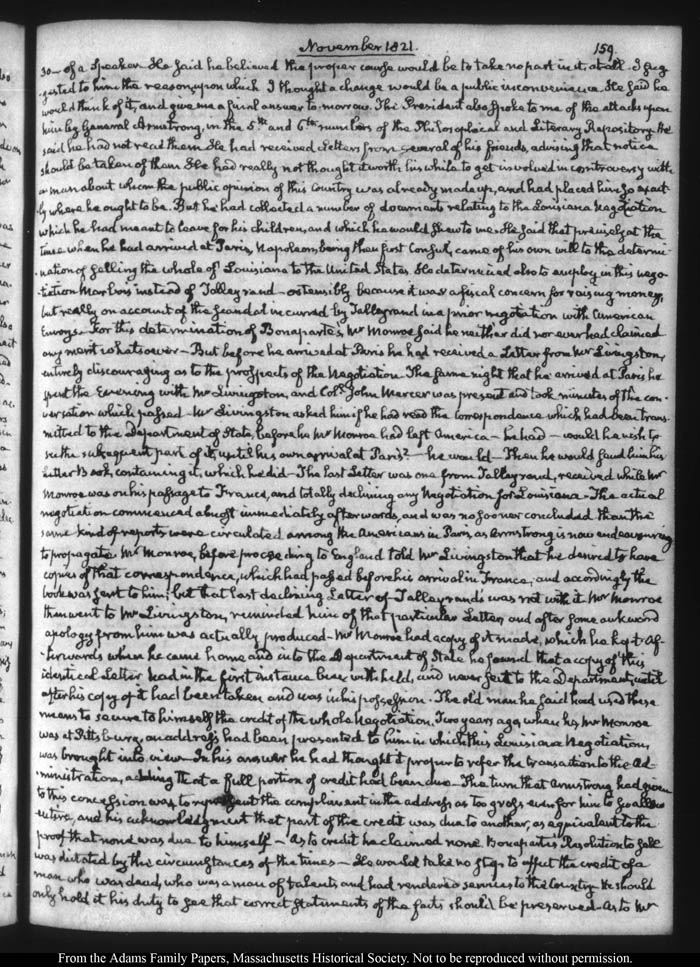 November 1821. 159.
30— of a Speaker. He said he believed the proper course would be to take no part in it, at all. I sug-
gested to him the reasons upon which I thought a change would be a public inconvenience. He said he
would think of it, and give me a final answer to-morrow. The President also spoke to me of the attacks upon
him by General Armstrong, in the 5th and 6th numbers of the Philosophical and Literary Repository. He
said he had not read them. He had received Letters from several of his friends, advising that notice
should be taken of them. He had really not thought it worth his while to get involved in controversy with
a man about whom the public opinion of this Country was already made up, and had placed him so exact-
ly where he ought to be. But he had collected a number of documents relating to the Louisiana Negotiation
which he had meant to leave for his children, and which he would shew to me. He said that precisely at the
time when he had arrived at Paris, Napoleon, being then first Consul, came of his own will to the determi-
nation of selling the whole of Louisiana to the United States. He determined also to employ in this nego-
tiation Marbois instead of Talleyrand— ostensibly because it was a fiscal concern for raising money,
but really on account of the scandal incurred by Talleyrand in a prior negotiation with American
Envoys. For this determination of Bonaparte's, Mr Monroe said he neither did nor ever had claimed
any merit whatsoever— But before he arrived at Paris he had received a Letter from Mr Livingston,
entirely discouraging as to the prospects of the Negotiation. The same night that he arrived at Paris he
spent the Evening with Mr Livingston, and Coll. John Mercer was present and took minutes of the con-
versation which passed. Mr Livingston asked him if he had read the correspondence which had been trans-
mitted to the Department of State, before he Mr Monroe had left America— he had— would he wish to
see the subsequent part of it, until his own arrival at Paris?— he would— Then he would send him his
Letter Book, containing it, which he did— The last Letter was one from Talleyrand, received while Mr
Monroe was on his passage to France, and totally declining any Negotiation for Louisiana— The actual
negotiation commenced almost immediately afterwards, and was no sooner concluded than the
same kind of reports were circulated among the Americans in Paris, as Armstrong is now endeavouring
to propagate. Mr Monroe, before proceeding to England told Mr Livingston that he desired to have
copies of that correspondence, which had passed before his arrival in France; and accordingly the
book was sent to him; but that last declining Letter of Talleyrand's was not with it. Mr Monroe
then went to Mr Livingston, reminded him of that particular Letter, and after some awkward
apology from him was actually produced— Mr Monroe had a copy of it made, which he kept. Af-
terwards when he came home and into the Department of State he found that a copy of this
identical Letter had in the first instance been withheld, and never sent to the Department, until
after his copy of it had been taken and was in his possession. The old man he said had used these
means to secure to himself the credit of the whole Negotiation. Two years ago, when he, Mr Monroe
was at Pittsburg, an address had been presented to him in which this Louisiana Negotiation,
was brought into view— In his answer he had thought it proper to refer the transaction to the Ad-
ministration, adding that a full portion of credit had been due— The turn that Armstrong had given
to this concession was, to represent the compliment in the address as too gross even for him to
and his acknowledgment that part of the credit was due to another, as equivalent to the
proof that none was due to himself— As to credit he claimed none. Bonaparte's Resolution to sell
was dictated by the circumstances of the times— He would take no step to affect the credit of a
man who was dead, who was a man of talents and had rendered services to the Country. He should
only hold it his duty to see that correct statements of the facts should be preserved— As to Mr
From the Adams Family Papers, Massachusetts Historical Society. Not to be reproduced without permission.